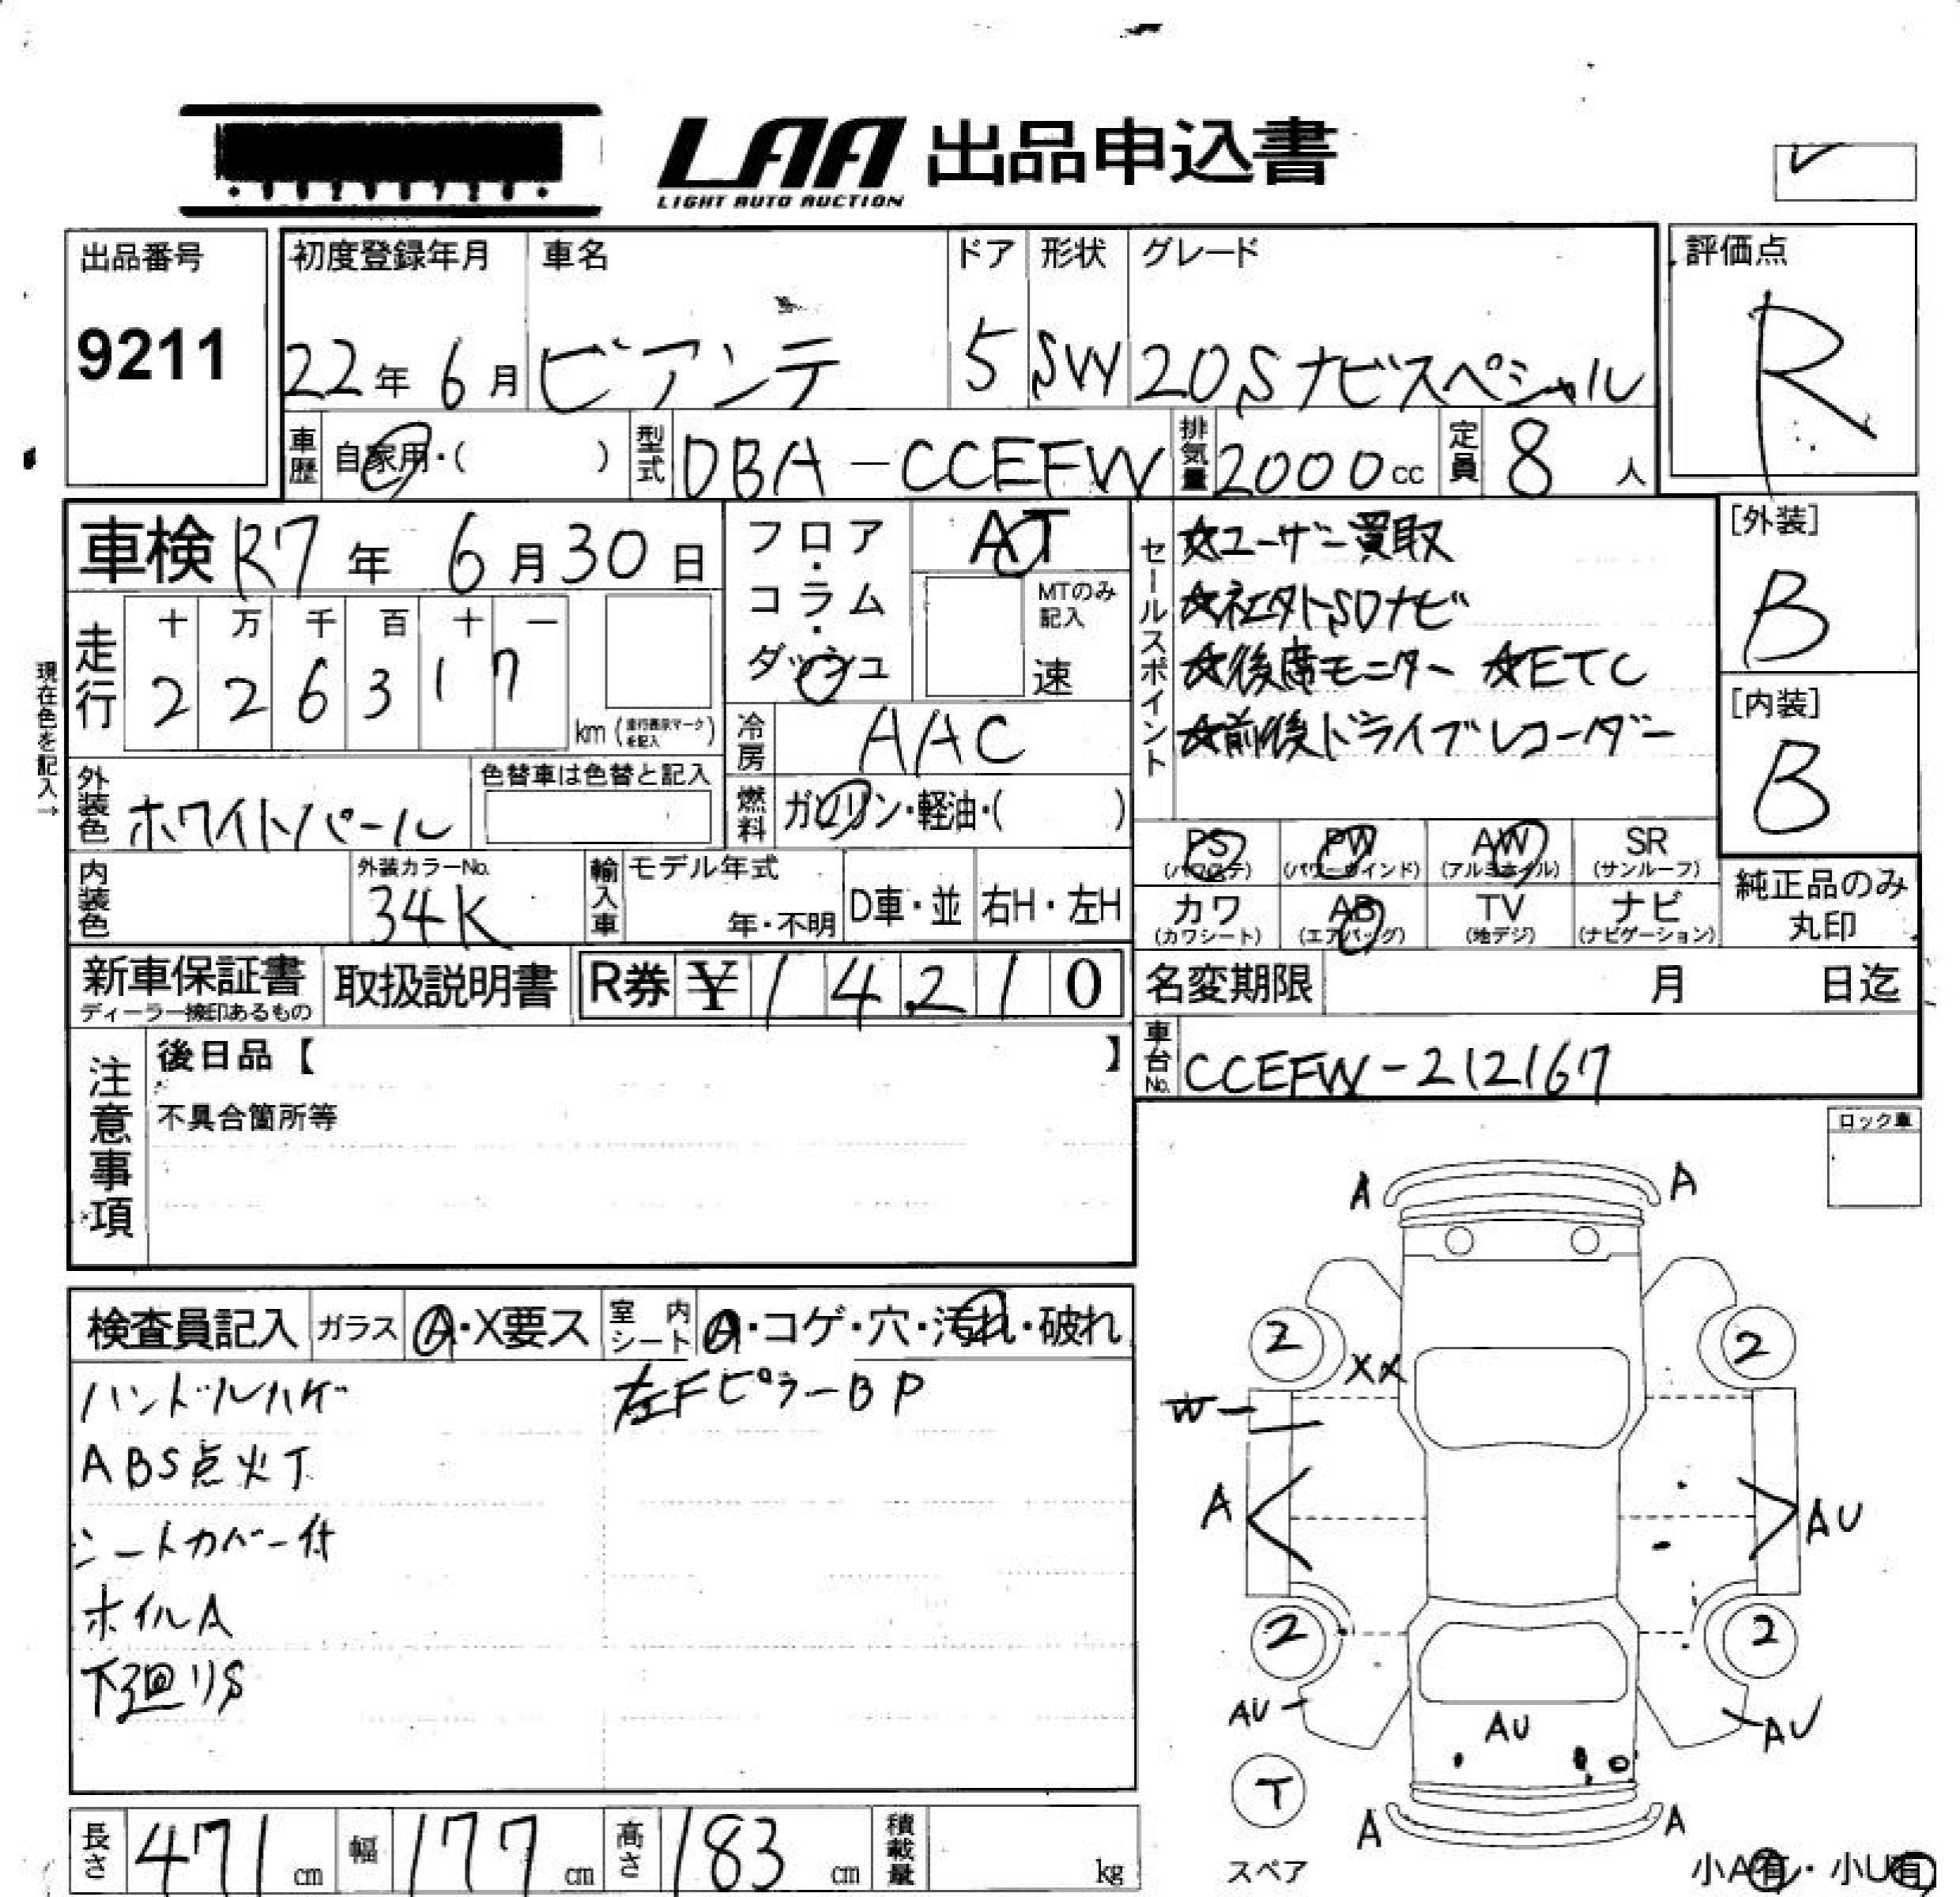 LAA 出品申込書
LIGHT AUTO AUCTION
出品番号
9211
初度登録年月 車名 ドア 形状 グレード
22年 6月 ビアンテ 5 SW 20S ナビスペシャル
評価点
R
車歴 自家用・( ) 型式 DBA-CCEFW 排気量 2000cc 定員 8人
車検 R7年 6月30日
フロア・コラム・ダッシュ
AT
MTのみ記入
速
現在色を記入→
走行 十 万 千 百 十 一
2 2 6 3 1 7 km (走行表示マークを記入)
冷房 AAC
燃料 ガソリン・軽油・( )
外装色 ホワイトパール
色替車は色替と記入
内装色
外装カラーNo.
34K
輸入車 モデル年式
年・不明 D車・並 右H・左H
セールスポイント
☆ユーザー買取
☆社外SDナビ
☆後席モニター ☆ETC
☆前後ドライブレコーダー
[外装]
B
[内装]
B
PS PW AW SR
(パワステ) (パワーウインド) (アルミホイル) (サンルーフ)
カワ AB TV ナビ
(カワシート) (エアバッグ) (地デジ) (ナビゲーション)
純正品のみ
丸印
新車保証書
ディーラー捺印あるもの
取扱説明書
R券 ¥ 1 4 2 1 0
名変期限 月 日迄
車台No. CCEFW-212167
注意事項
後日品【 】
不具合箇所等
ロック車
検査員記入 ガラス A・X要ス 室内シート A・コゲ・穴・汚れ・破れ
ハンドルハゲ 左FピラーBP
ABS点火T
シートカバー付
ホイルA
下廻りS
A A
2 2
XX
W
A AU
2 2
AU AU AU
T
A A
スペア
小A有・小U有
長さ 471cm 幅 177cm 高さ 183cm 積載量 kg